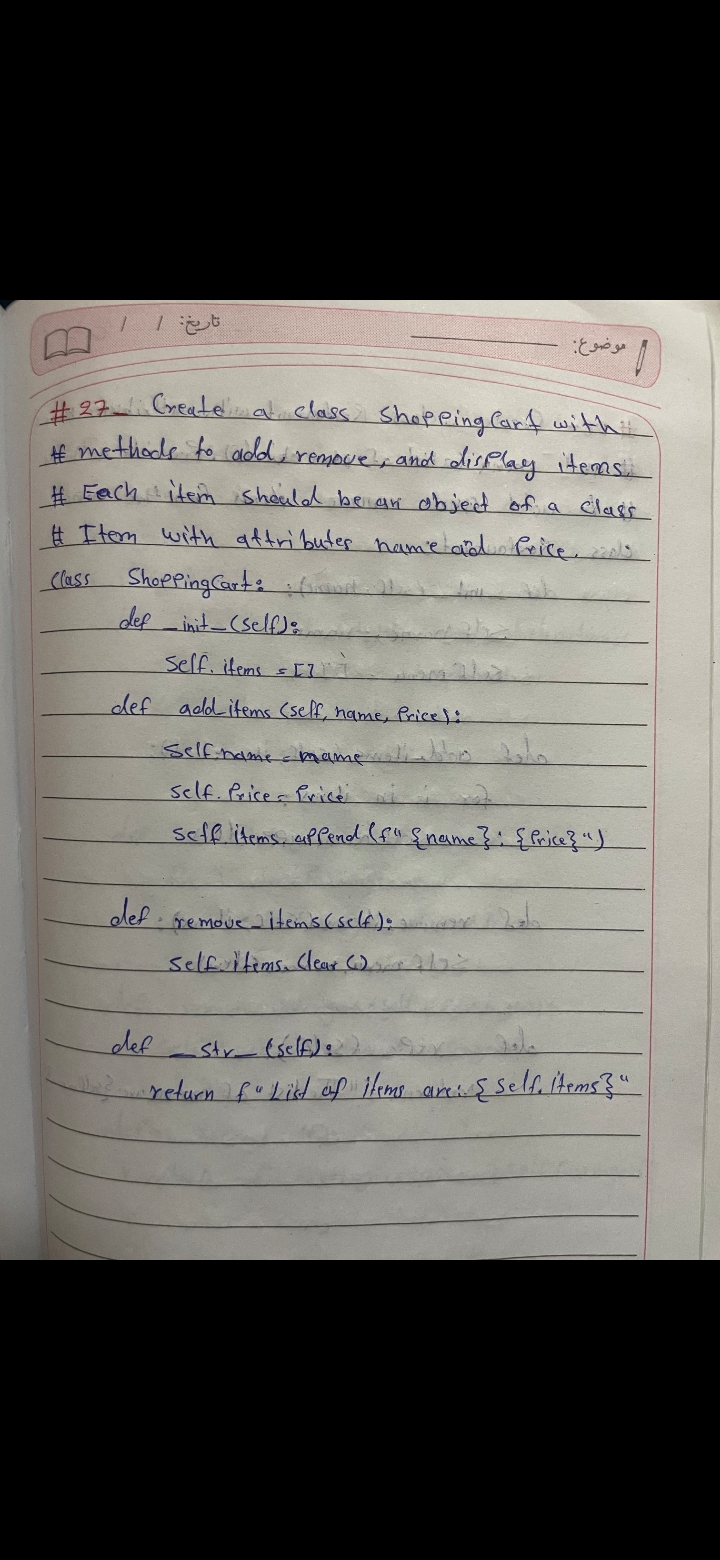 موضوع: تاریخ: / /
# 27_ Create a class ShoppingCart with
# methods to add, remove, and display items.
# Each item should be an object of a class
# Item with attributes name and Price.
class ShoppingCart:
def _init_(self):
self.items = []
def add_items (self, name, Price):
self.name = name
self.Price = Price
self.items.append(f"{name}: {Price}")
def remove_items(self):
self.items.clear()
def __str__(self):
return f"List of items are: {self.items}"